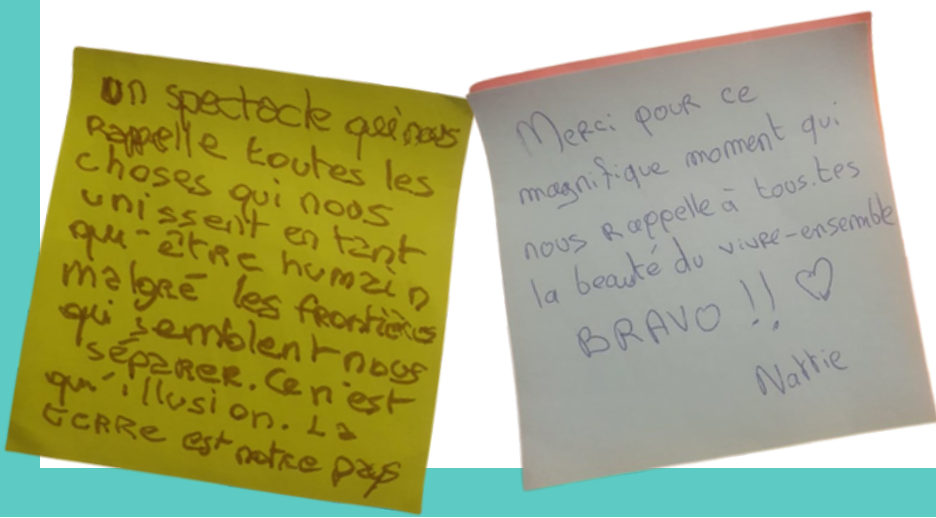 un spectacle qui nous
Rappelle toutes les
choses qui nous
unissent en tant
qu'être humain
malgré les frontières
qui semblent nous
séparer. Ce n'est
qu'illusion. La
terre est notre pays
Merci pour ce
magnifique moment qui
nous rappelle à tous.tes
la beauté du vivre-ensemble
BRAVO !! ♡